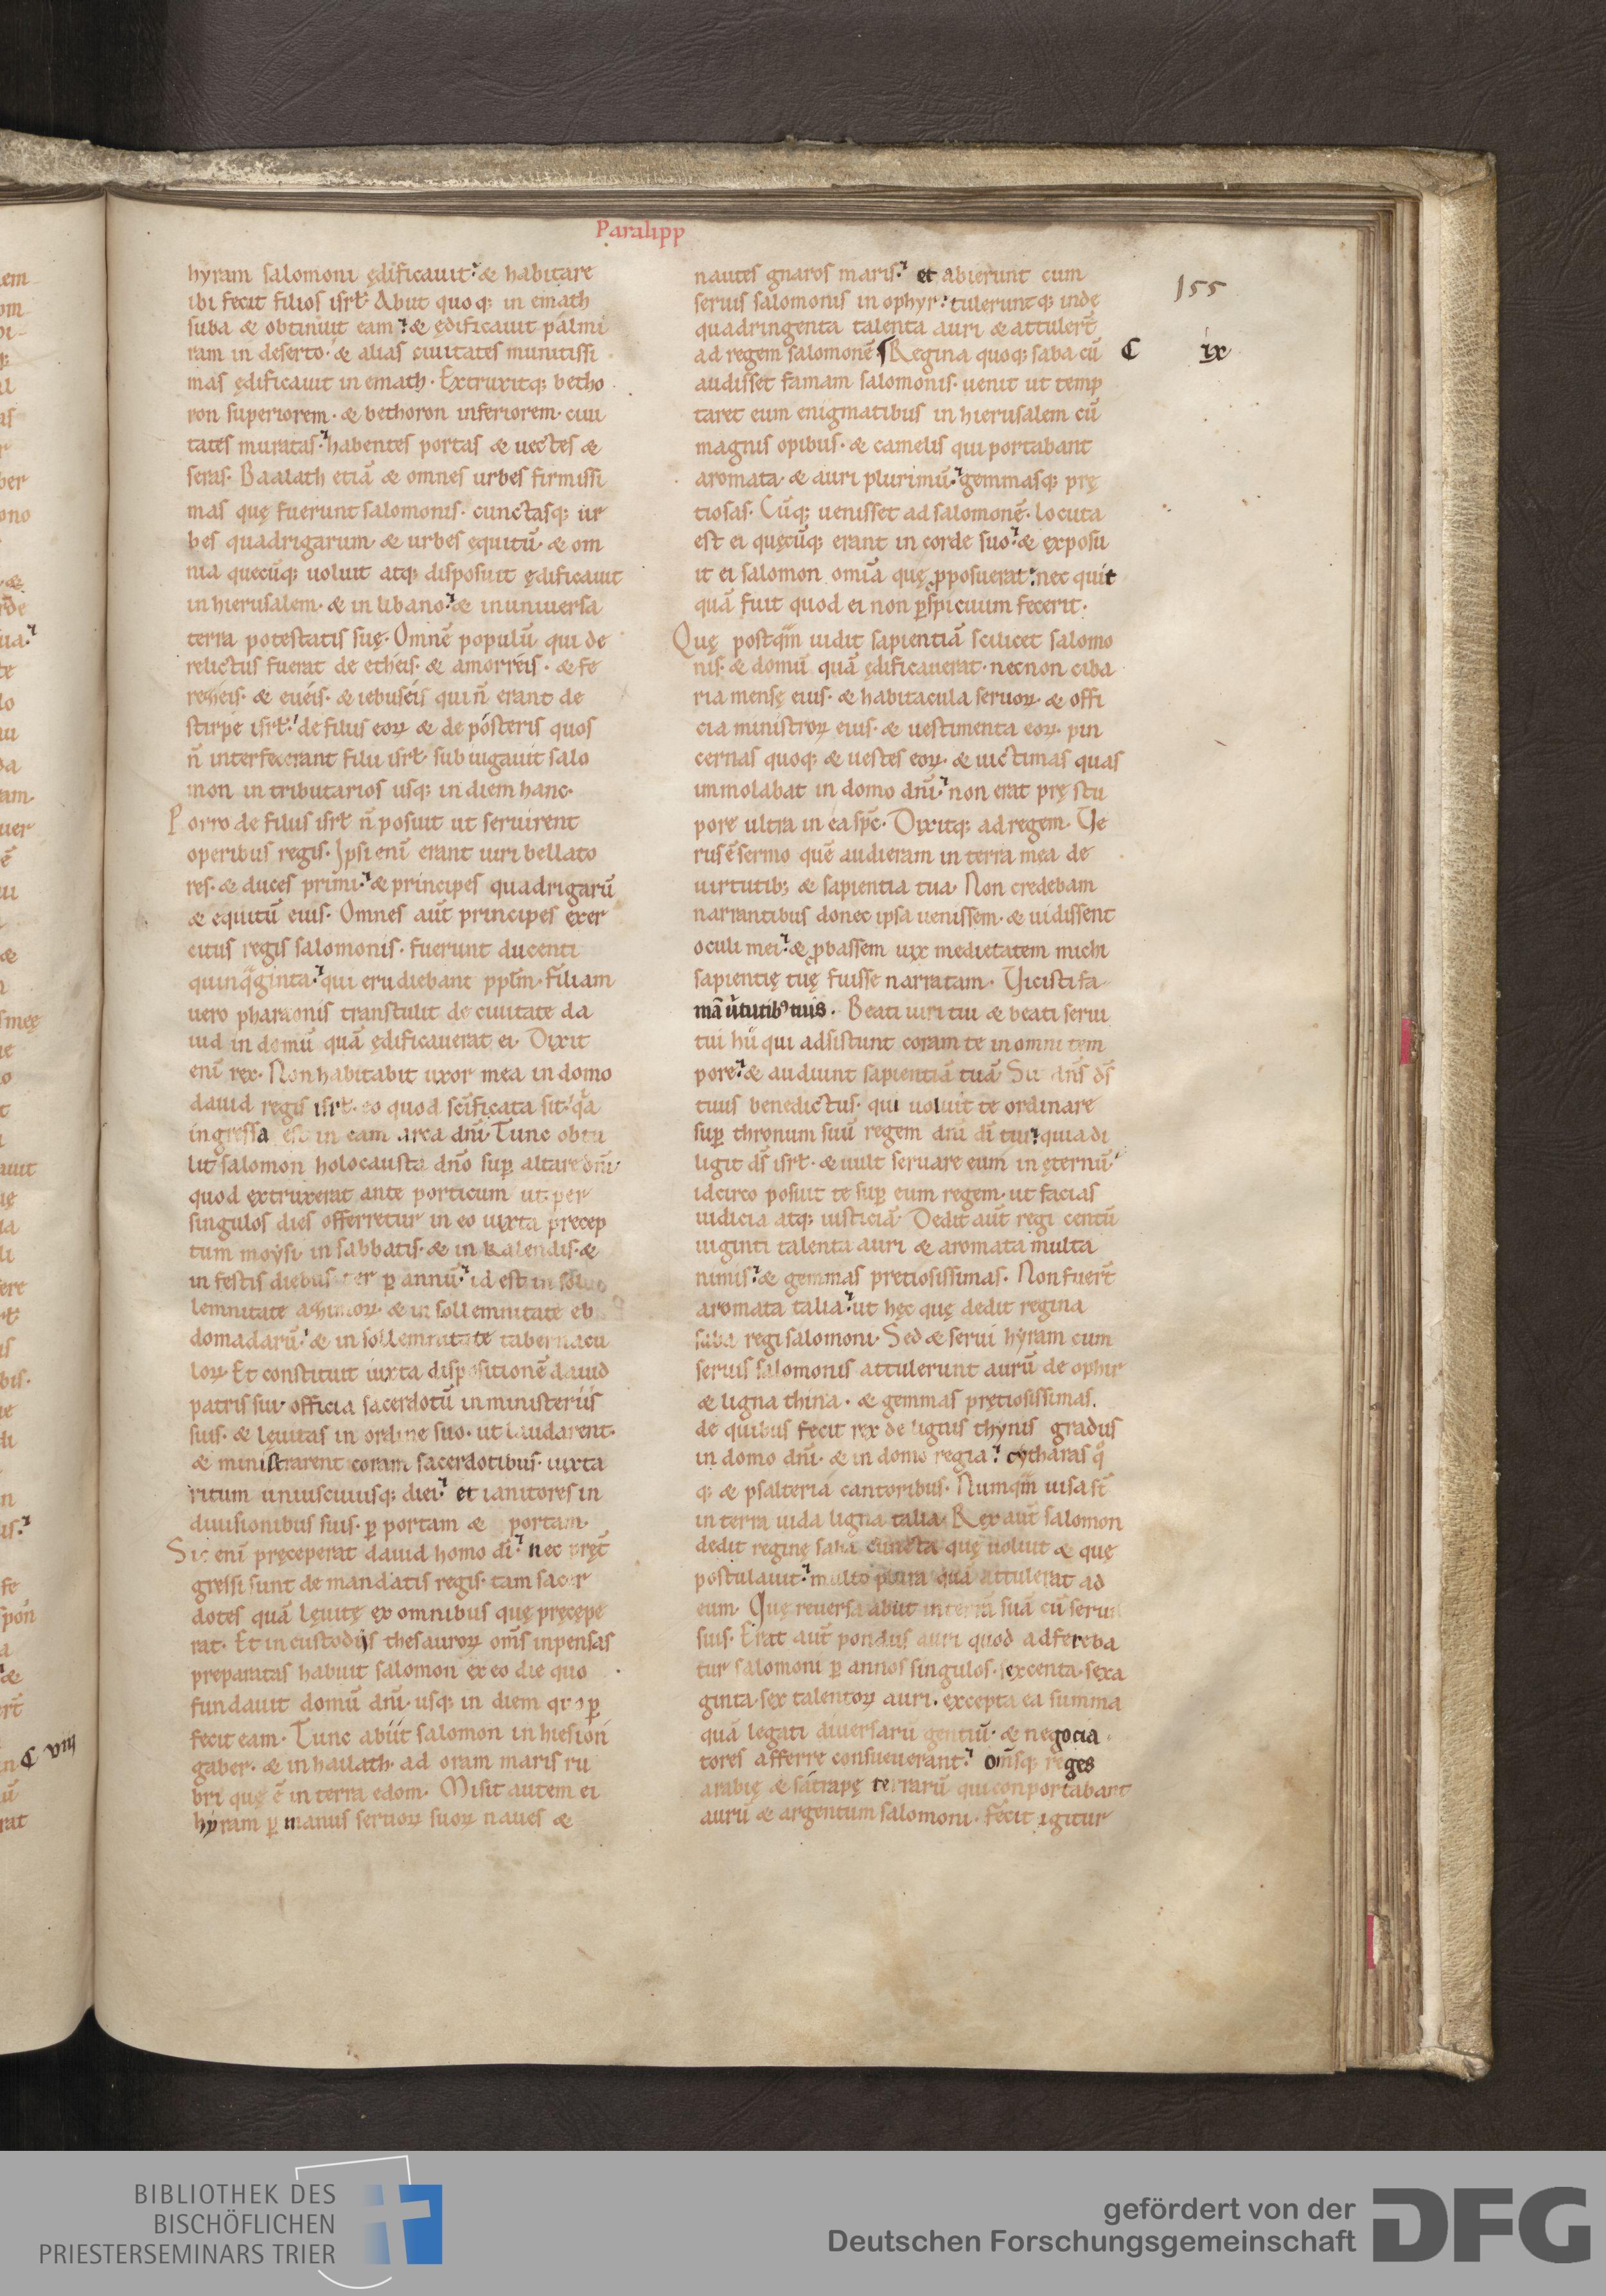 Paralipp
hyram salomoni ędificauit & habitare
ibi fecit filios isrł. Abiit quoq; in emath
suba & obtinuit eam & ędificauit palmi
ram in deserto & alias ciuitates munitissi
mas ędificauit in emath. Extruxitq; betho
ron superiorem & bethoron inferiorem ciui
tates muratas habentes portas & uectes &
seras. Baalath etiā & omnes urbes firmissi
mas quę fuerunt salomonis. cunctasq; ur
bes quadrigarum & urbes ęquitū & om
nia quecūq; uoluit atq; disposuit ędificauit
in hierusalem & in libano & in uniuersa
terra potestatis suę. Omnē populū qui de
relictus fuerat de etheis & amorreis & fe
rezeis & eueis & iebuseis qui ñ erant de
stirpe isrł de filiis eoꝝ & de posteris quos
ñ interfecerant filii isrł subiugauit salo
mon in tributarios usq; in diem hanc.
Porro de filiis isrł ñ posuit ut seruirent
operibus regis. Ipsi enī erant uiri bellato
res & duces primi & principes quadrigarū
& equitū eius. Omnes aūt principes exer
citus regis salomonis fuerunt ducenti
quinqͣginta qui erudiebant ppłm. Filiam
uero pharaonis transtulit de ciuitate da
uid in domū quā ędificauerat ei. Dixit
enī rex. Non habitabit uxor mea in domo
dauid regis isrł eo quod scīficata sit qͣa
ingressa est in eam arca dn̄i. Tunc obtu
lit salomon holocausta dn̄o suꝑ altare dn̄i
quod extruxerat ante porticum ut per
singulos dies offerretur in eo iuxta precep
tum moysi in sabbatis & in kalendis &
in festis diebus ter ꝑ annū id est in
lemnitate azimoꝝ & in sollemnitate eb
domadarū & in sollemnitate tabernacu
loꝝ. Et constituit iuxta dispositionē dauid
patris sui officia sacerdotū in ministeriis
suis & leuitas in ordine suo ut laudarent
& ministrarent coram sacerdotibus iuxta
ritum uniuscuiusq; diei et ianitores in
diuisionibus suis ꝑ portam & portam.
Sic enī pręceperat dauid homo dī nec pręt̄
gressi sunt de mandatis regis tam sacer
dotes quā lęuitę ex omnibus quę pręcępe
rat. Et in custodiis thesauroꝝ om̄s inpensas
preparatas habuit salomon ex eo die quo
fundauit domū dn̄i usq; in diem quo ꝑ
fecit eam. Tunc abiit salomon in hesion
gaber & in hailath ad oram maris ru
bri quę ē in terra edom. Misit autem ei
hyram ꝑ manus seruoꝝ suoꝝ naues &
nautes gnaros maris et abierunt cum
seruis salomonis in ophyr tuleruntq; inde
quadringenta talenta auri & attuler̄t
ad regem salomonē Regina quoq; saba cū
audisset famam salomonis uenit ut temp
taret eum enigmatibus in hierusalem cū
magnis opibus & camelis qui portabant
aromata & auri plurimū gemmasq; prę
tiosas. Cūq; uenisset ad salomonē locuta
est ei quęcūq; erant in corde suo & exposu
it ei salomon omīa quę ꝓposuerat nec quit
quā fuit quod ei non ꝑspicuum fecerit.
Quę postqͣm uidit sapientiā scilicet salomo
nis & domū quā ędificauerat necnon ciba
ria mensę eius & habitacula seruoꝝ & offi
cia ministroꝝ eius & uestimenta eoꝝ pin
cernas quoq; & uestes eoꝝ & uictimas quas
immolabat in domo dn̄i non erat prę stu
pore ultra in ea sp̄c. Dixitq; ad regem. Ue
rus ē sermo quē audieram in terra mea de
uirtutib; & sapientia tua. Non credebam
narrantibus donec ipsa uenissem & uidissent
oculi mei & ꝓbassem uix medietatem michi
sapientię tuę fuisse narratam. Uicisti fa
mā ůtutib⁹ tuis. Beati uiri tui & beati serui
tui hii qui adsistunt coram te in omni tem
pore & audiunt sapientiā tuā. Sit dn̄s ds̄
tuus benedictus qui uoluit te ordinare
suꝑ thronum suū regem dn̄i dī tui quia di
ligit ds̄ isrł & uult seruare eum in ęternū
idcirco posuit te suꝑ eum regem ut facias
iudicia atq; iusticiā. Dedit aūt regi centū
uiginti talenta auri & aromata multa
nimis & gemmas pretiosissimas. Non fuer̄t
aromata talia ut hęc quę dedit regina
saba regi salomoni. Sed & serui hyram cum
seruis salomonis attulerunt aurū de ophir
& ligna thina & gemmas pręciosissimas.
de quibus fecit rex de lignis thynis gradus
in domo dn̄i & in domo regia cytharas qͦ
q; & psalteria cantoribus. Numqͣm uisa st̄
in terra iuda ligna talia. Rex aūt salomon
dedit reginę saba cuncta quę uoluit & quę
postulauit multo plura quā attulerat ad
eum. Quę reuersa abiit in terrā suā cū seruis
suis. Erat aūt pondus auri quod adfereba
tur salomoni ꝑ annos singulos sexcenta sexa
ginta sex talentoꝝ auri. excepta ea summa
quā legati diuersarū gentiū & negocia
tores afferre consueuerant om̄sq; reges
arabię & satrapę terrarū qui conportabant
aurū & argentum salomoni. Fecit igitur
155
C ix
C viii
BIBLIOTHEK DES
BISCHÖFLICHEN
PRIESTERSEMINARS TRIER
gefördert von der
Deutschen Forschungsgemeinschaft
DFG